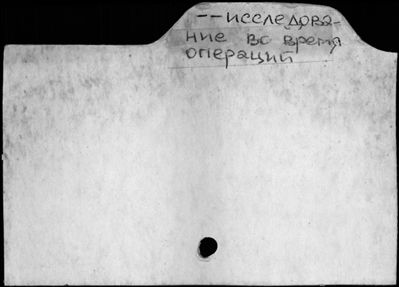 --исследова-
ние во время
операций